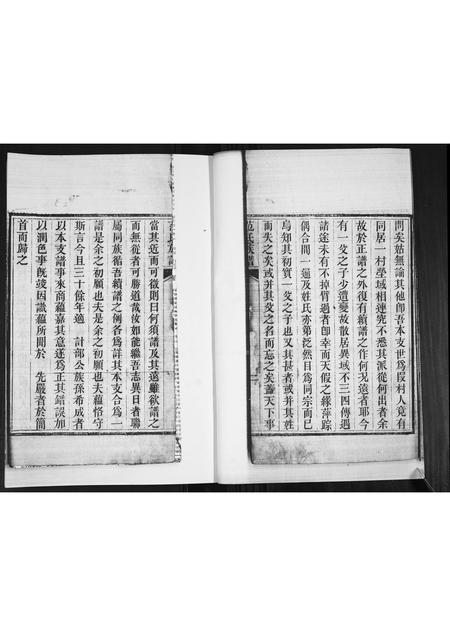 問矣姑無論其他即吾本支世爲段村人竟有
同居一村塋域相連究不悉其派從何出者余
故於正譜之外復有續譜之作何況遠者耶今
有一父之子少遭變故散居異域不三四傳遇
諸途未有不掉臂過者即幸而天假之緣萍踪
偶合間一通及姓氏亦第泛然目爲同宗而已
烏知其初實一父之子也又其甚者或并其姓
而失之矣或并其父之名而忘之矣蓋天下事
當其近而可徵則曰何須譜及其遠雖欲譜之
而無從者可勝道哉汝如能繼吾志異日者聯
屬同族循吾續譜之例各爲詳其本支合爲一
譜是余之初願也夫是余之初願也夫蘊恪守
斯言今且三十餘年適 計部公族孫希成者
以本支譜事來商蘊嘉其意遂爲正其錯誤加
以潤色事既竣因識蘊所聞於 先嚴者於簡
首而歸之